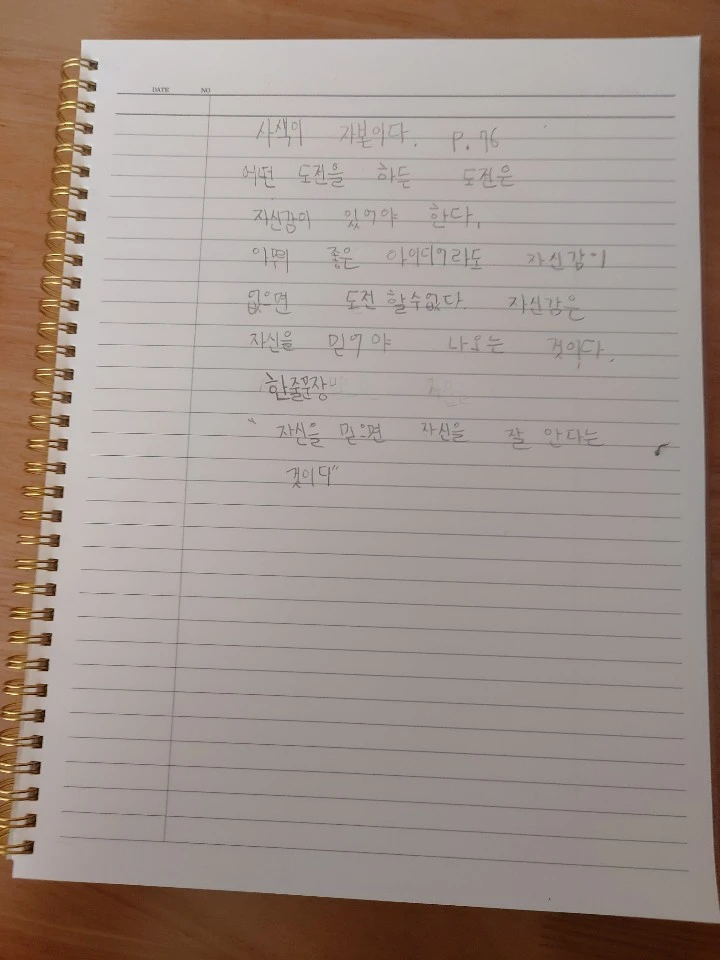 DATE NO
사색이 자본이다. P. 76
어떤 도전을 하든 도전은
자신감이 있어야 한다.
좋은 아이디어라도 자신감이
없으면 도전 할수없다. 자신감은
자신을 믿어야 나오는 것이다.
한줄문장
" 자신을 믿으면 자신을 잘 안다는
것이다"